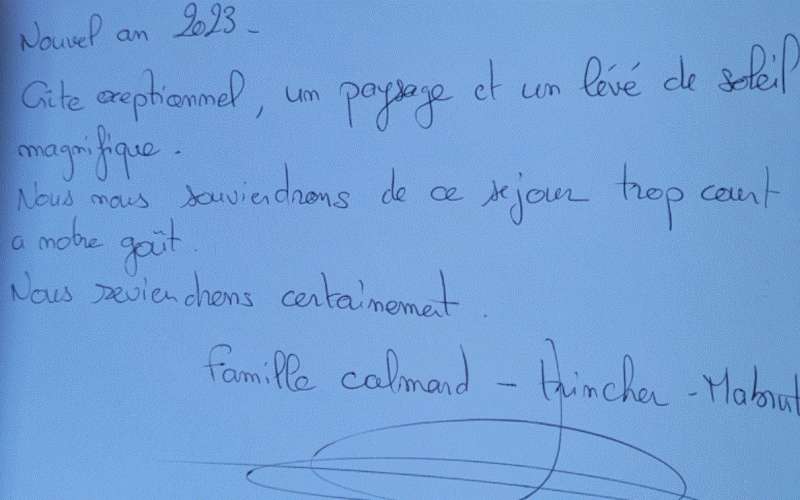 Nouvel an 2023-
Gîte exeptionnel, un paysage et un lévé de soleil
magnifique.
Nous nous souviendrons de ce sejour trop court
a notre goût.
Nous reviendrons certainement.
Famille calmard -